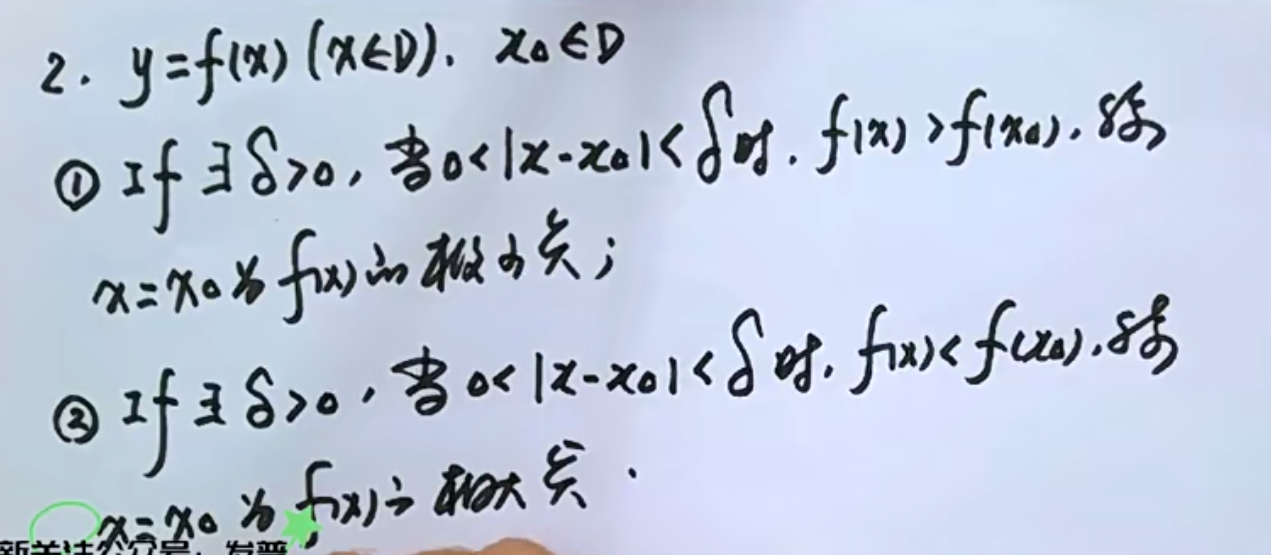 2. y=f(x) (x∈D). x₀∈D
① If ∃δ>0, 当0<|x-x₀|<δ时, f(x)>f(x₀). 称
x=x₀为f(x)的极小点;
② If ∃δ>0, 当0<|x-x₀|<δ时, f(x)<f(x₀). 称
x=x₀为f(x)的极大点.
新关注公众号:发普